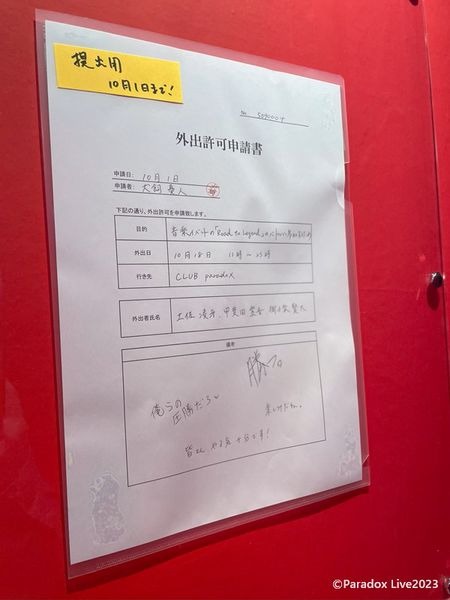 提出用
10月1日まで!
外出許可申請書
申請日: 10月1日
申請者: 犬飼 憂人
下記の通り、外出許可を申請致します。
目的
音楽イベントの「Road to Legend」
外出日
10月18日 11時〜23時
行き先
CLUB paradoX
外出者氏名
土佐 凌牙、甲斐田 紫杏、
備考
勝つ
俺らの
圧勝だろ
楽しみだね。
皆さん、やる気十分です!
©Paradox Live2023